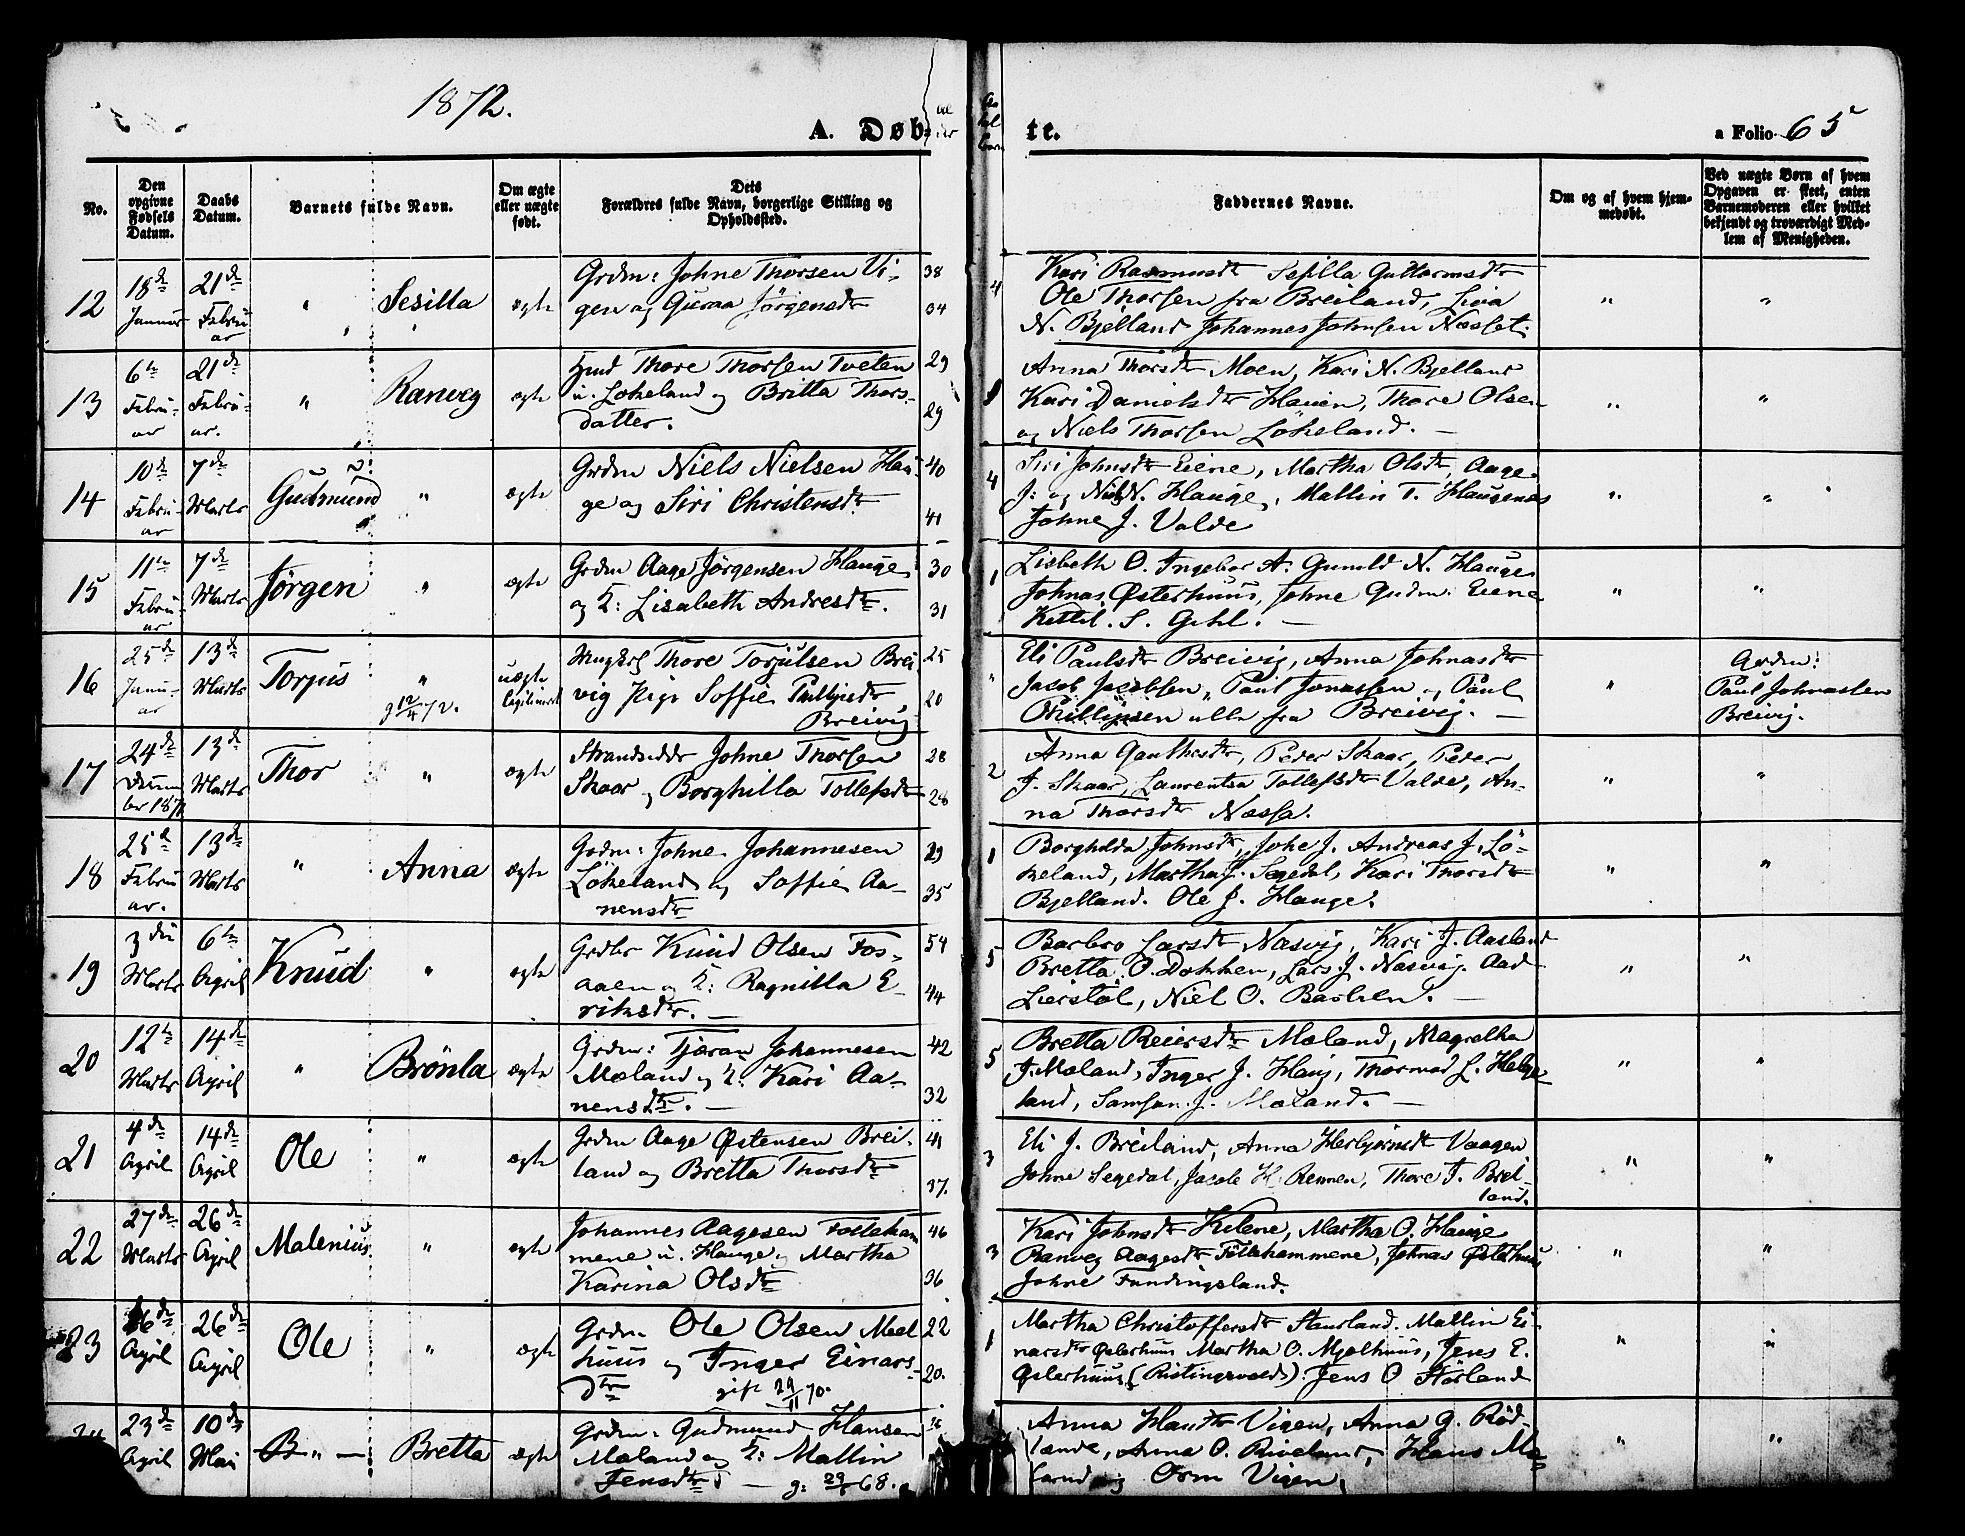 1872.
A. Døbte.
a Folio 65
No.
Den opgivne Fødsels Datum.
Daabs Datum.
Barnets fulde Navn.
Om ægte eller uægte født.
Dets Forældres fulde Navn, borgerlige Stilling og Opholdssted.
Faddernes Navne.
Om og af hvem hjemmedøbt.
Ved uægte Børn af hvem Opgaven er skeet, enten Barnemoderen eller hvilket bekjendt og troværdigt Medlem af Menigheden.
12
18de Januar
21de Februar
"
Sesilla
ægte
Grdm: Johne Thorsen Vi-
gen og Guroa Jørgensdtr
38
34
4
Kari Rasmusdtr Sesilla Guttormsdtr
Ole Thorsen fra Breiland, Siva
N. Bjelland Johannes Johnsen Nesset.
"
"
13
6te Februar
21de Februar.
"
Ranveg
ægte
Hmd Thore Thorsen Tveten
u. Løkeland og Britta Thors-
datter.
29
29
Anna Thorsdtr Moen, Kari N. Bjelland
Kari Danielsdtr Hauen, Thore Olsen
og Niels Thorsen Løkeland. —
"
"
14
10de Februar
7de Marts
Gudmund
"
ægte
Grdm Niels Nielsen Hau-
ge og Siri Christensdtr
40
41
4
Siri Johnsdtr Eiene, Martha Olsdtr, Aage
J: og Niels N. Hauge, Mallin T. Haugenas
Johne J. Valde
"
"
15
11te Februar
7de Marts
Jørgen
"
ægte
Grdm Aage Jørgensen Hauge
og K: Lisabeth Andresdtr.
30
31
1
Lisbeth O. Ingebor A. Gunild N. Hauge
Johnas Østerhuus, Johne Gudm: Eiene
Kettil. S. Gehl. —
"
"
16
25de Januar
13de Marts
Torjus
"
g 12/4 72.
uægte
Legitimert
Ungkrl Thore Torjulsen Brei
vig Pige Soffie
Breivig
25
20
"
Eli Paulsdtr Breivig, Anna Johnasdtr
Jacob Jacobsen, Paul Jonassen og Paul
Phillipsen alle fra Breivig. —
"
Grdm:
Paul Johnassen
Breivig.
17
24de December 1871
13de Marts
Thor
"
ægte
Strandsidder Johne Thorsen
Skaar og Borghilla Tollefsdtr
28
28
2
Anna Gauthesdtr, Peder Skaar, Peder
J. Skaar, Laurentsa Tollefsdtr Valde, An-
na Thorsdtr Nessa.
"
"
18
25de Februar.
13de Marts
"
Anna
ægte
Grdm: Johne Johannesen
Løkeland og Soffie Aa-
nensdtr
29
35
1
Borghilda Johnsdtr, Johe J. Andreas J. Lø-
keland, Martha J. Segedal, Kari Thorsdtr
Bjelland. Ole J. Hauge.
"
"
19
3die Marts
6te April
Knud
"
ægte
Grdbr Knud Olsen Fos-
aaen og K: Ragnilla E-
riksdtr. —
54
44
5
Barbro Larsdtr Næsvig, Kari J. Aasland
Bretta O. Dokken, Lars J. Næsvig. Aad
Lierstøl, Niel O. Bakken. —
"
"
20
12te Marts
14de April
"
Brønla
ægte
Grdm: Tjæran Johannesen
Mæland og K: Kari Aa-
nensdtr. —
42
32
5
Bretta Reiersdtr Mæland, Magrelha
J. Mæland, Inger J. Haug, Thormod L. Helge
land, Samson J. Mæland. —
"
"
21
4de April
14de April
Ole
"
ægte
Grdm Aage Østensen Brei-
land og Bretta Thorsdtr
41
37.
3
Eli J. Breiland, Anna Herbjørnsdt Vaagen
Johne Segedal, Jacob H. Rennen, Thore T. Brei-
land.
"
"
22
27de Marts
26de April
Malenius
"
ægte
Johannes Aagesen Folleham
mene u. Hauge og Martha
Karina Olsdtr
46
36
3
Kari Johnsdtr Kilene, Martha O. Hauge
Ranveg Aagesdtr Follehammene, Johnas Østerhuus
Johne Fundingsland.
"
"
23
16de April
26de April
Ole
"
ægte
Grdm Ole Olsen Mæl
huus og Inger Einars-
dtr gift 29/11 70.
22
20.
1
Martha Christoffersdtr Staurland. Mallin Ei-
narsdtr Østerhuus Martha O. Mjølhuus, Jens E.
Østerhuus (Ristingevold) Jens O Størland
"
"
23de April
10de Mai
B " —
Bretta
ægte
Grdm: Gudmund Hansen
Mæland og K: Mallin
Jensdtr — g: 29/6 68.
36
Anna Hansdtr Vigen, Anna G. Rød-
lande, Anna O. Riveland, Hans Mæ-
land og Orm Vigen.
"
"